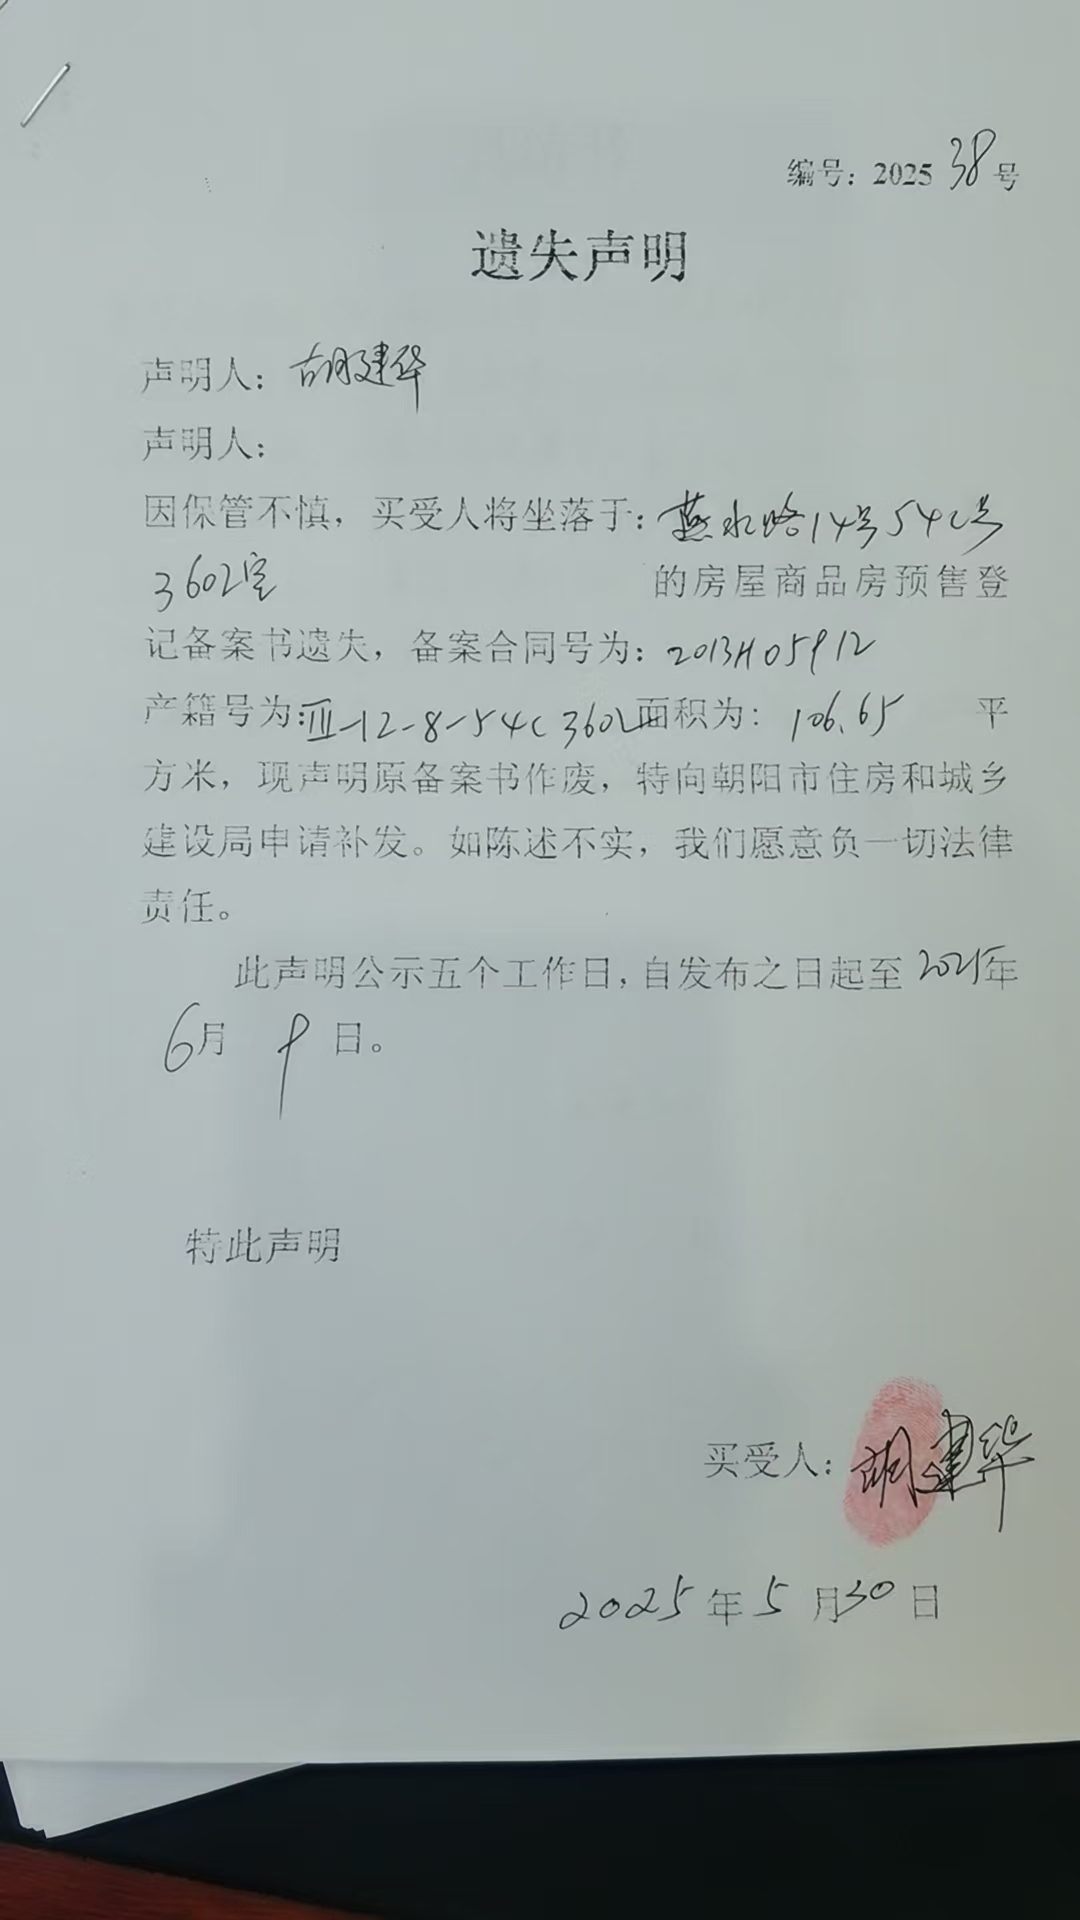 编号：2025 38号
遗失声明
声明人：胡建华
声明人：
因保管不慎，买受人将坐落于：燕水路14号54C号
3602室 的房屋商品房预售登
记备案书遗失，备案合同号为：2013H05912
产籍号为：Ⅲ-12-8-54C 3602面积为：106.65 平
方米，现声明原备案书作废，特向朝阳市住房和城乡
建设局申请补发。如陈述不实，我们愿意负一切法律
责任。
此声明公示五个工作日，自发布之日起至2025年
6月 9 日。
特此声明
买受人：胡建华
2025年5月30日